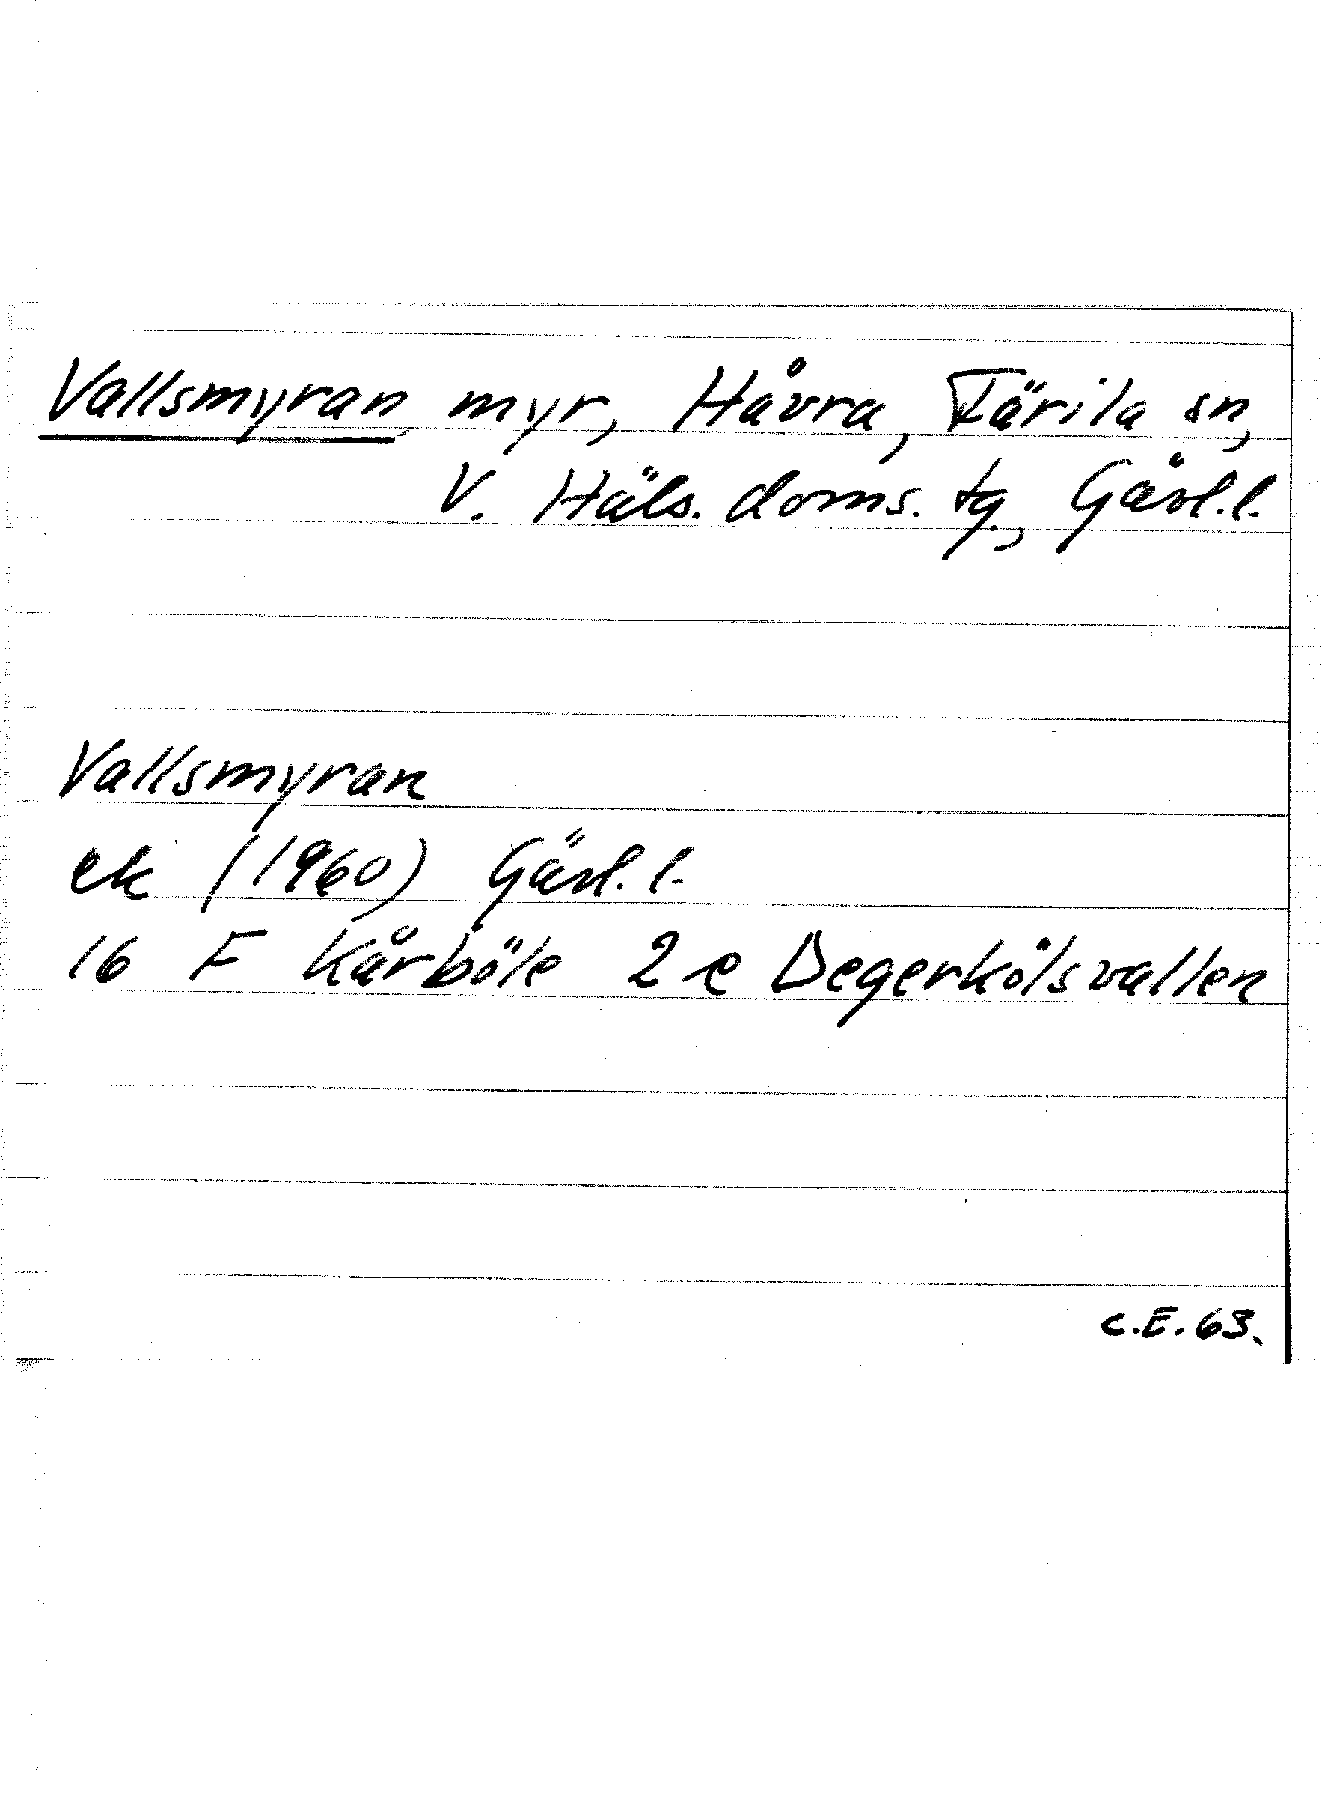 Vallsmyran, myr, Håvra, Färila sn,
V. Häls. doms. tg., Gävl.l.
Vallsmyran
ek (1960) Gävl.l.
16 F Kårböle 2 e Degerkölsvallen
C.E.63.